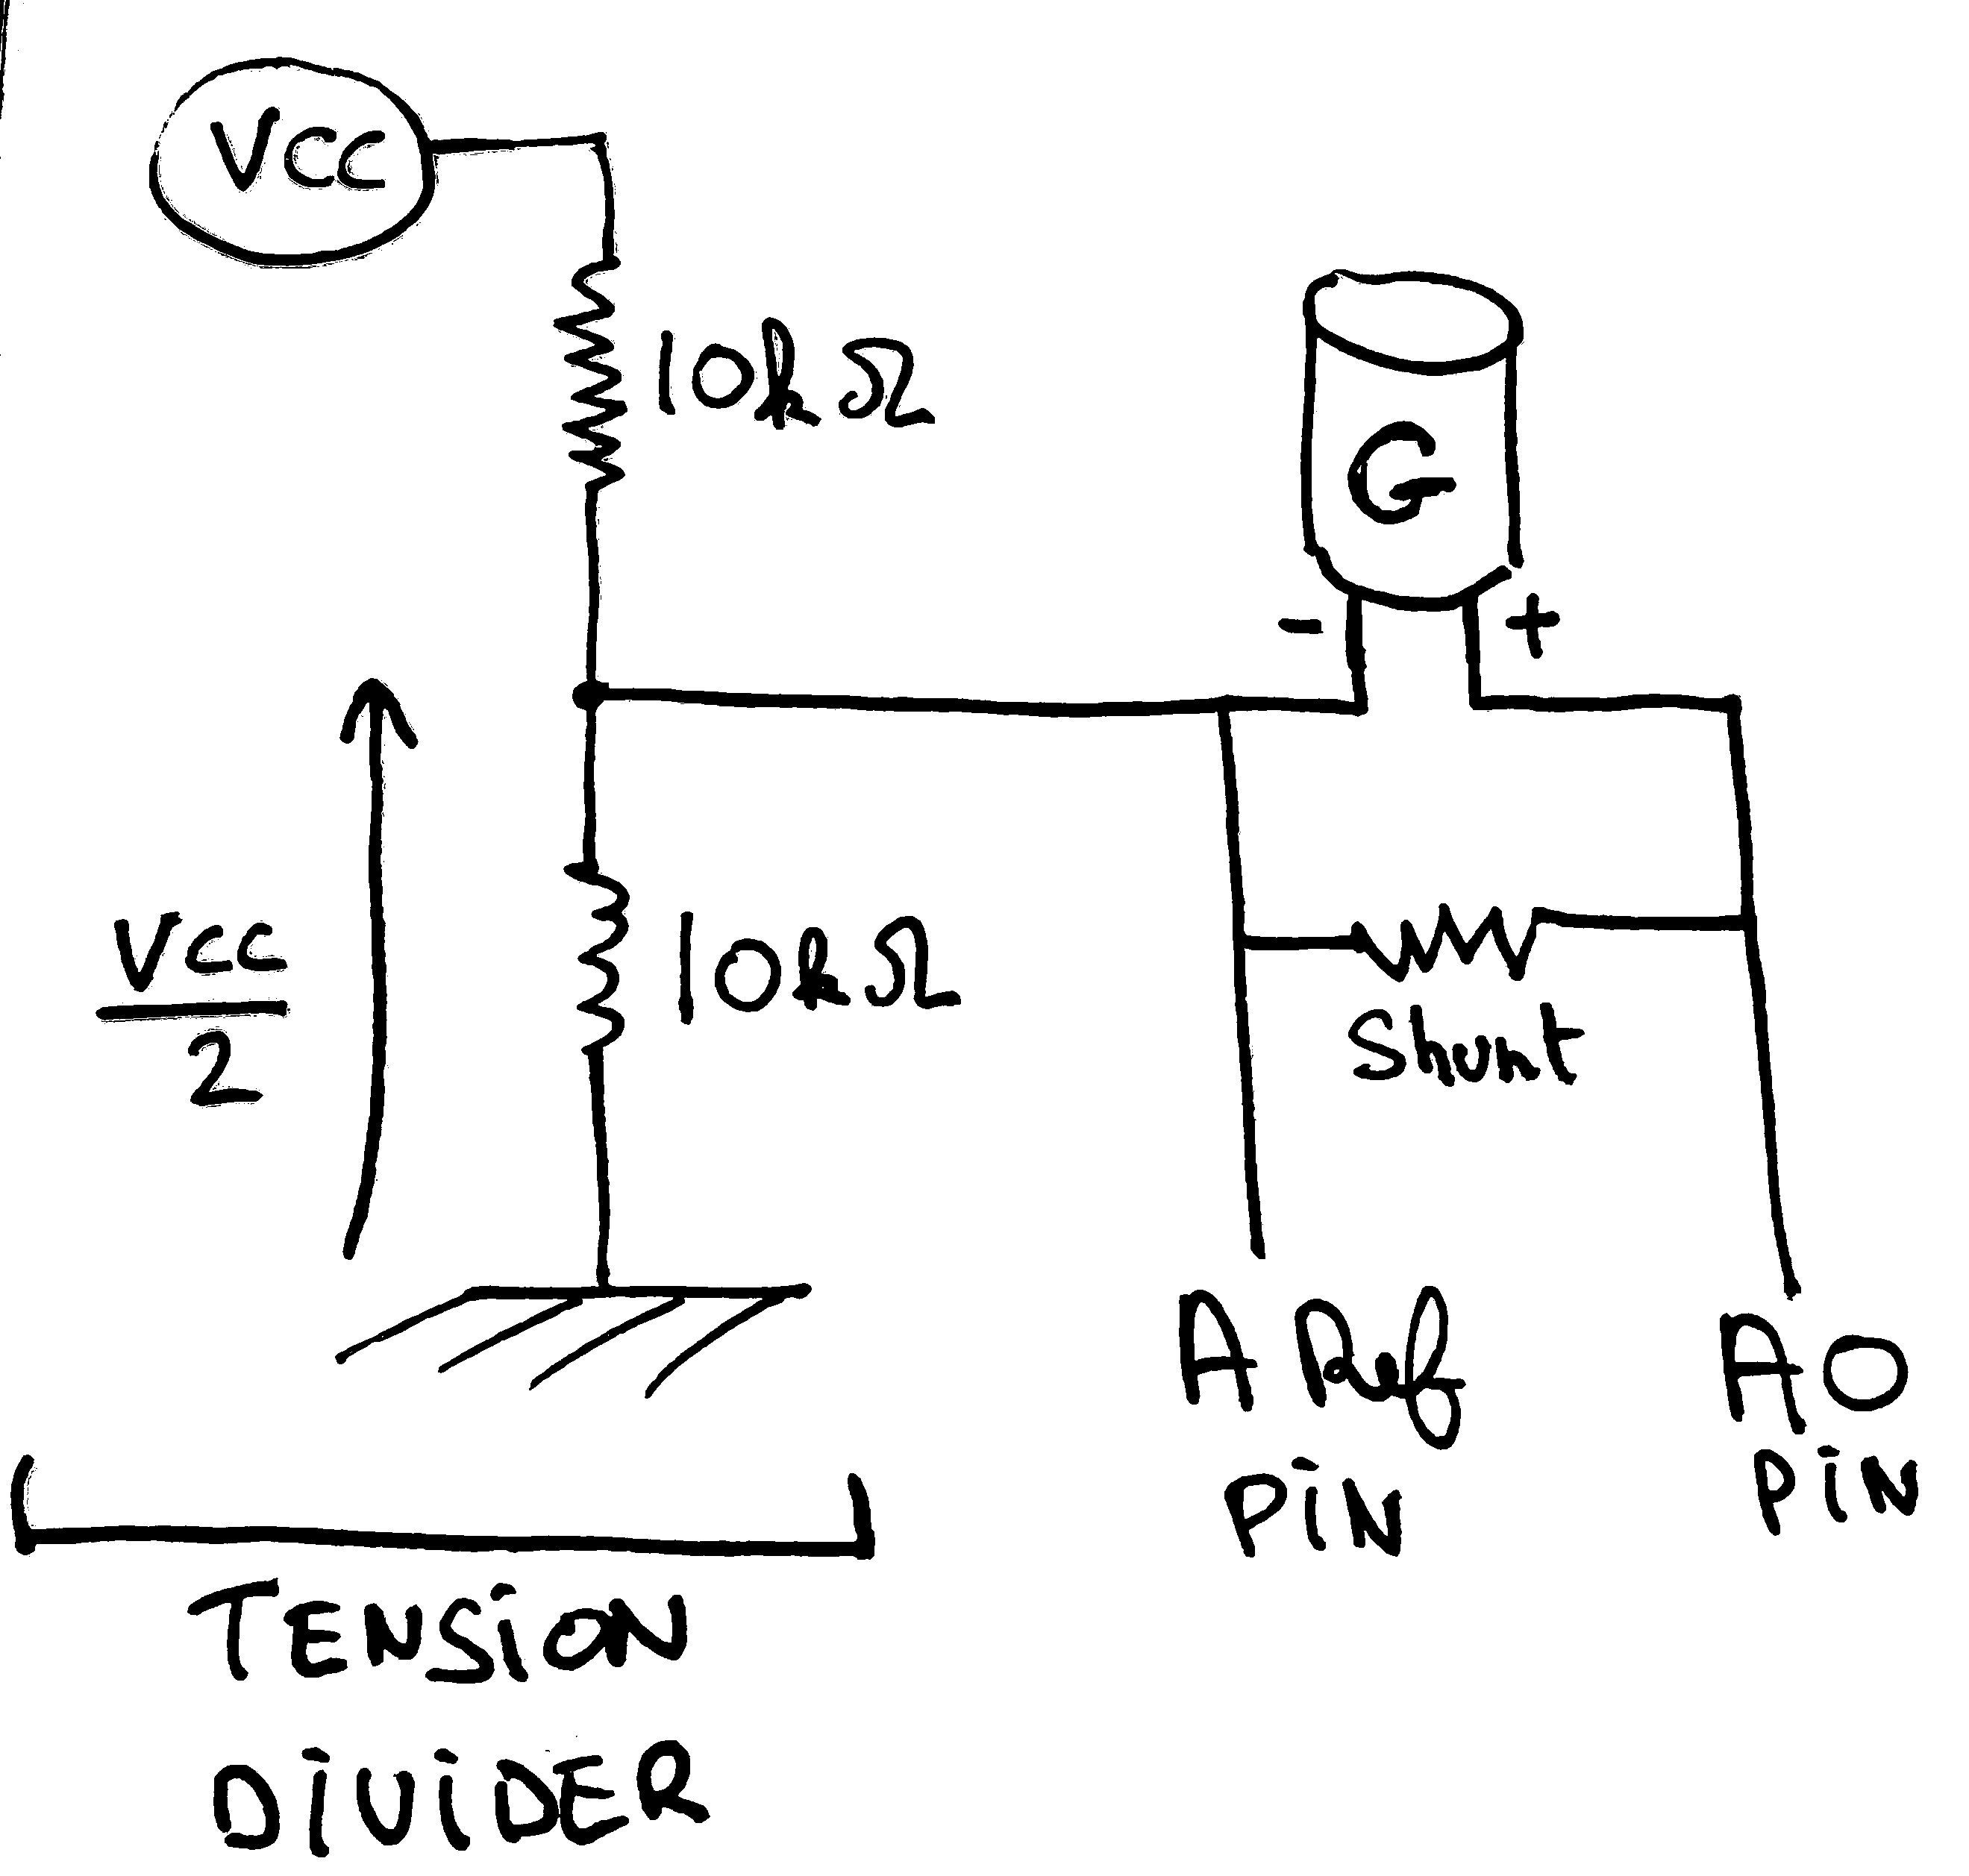 VCC
10kΩ
G
- +
VCC
2
10kΩ
Shunt
A Ref
PIN
A0
PIN
TENSION
DIVIDER